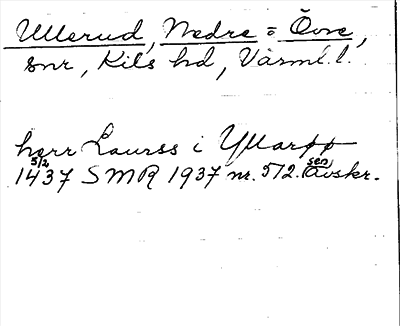 Ullerud, Nedre o Övre,
snr, Kils hd, Värml. l.
herr Laurss i Yllarpp
5/2
1437 SMR 1937 nr. 572. sen. Avskr.